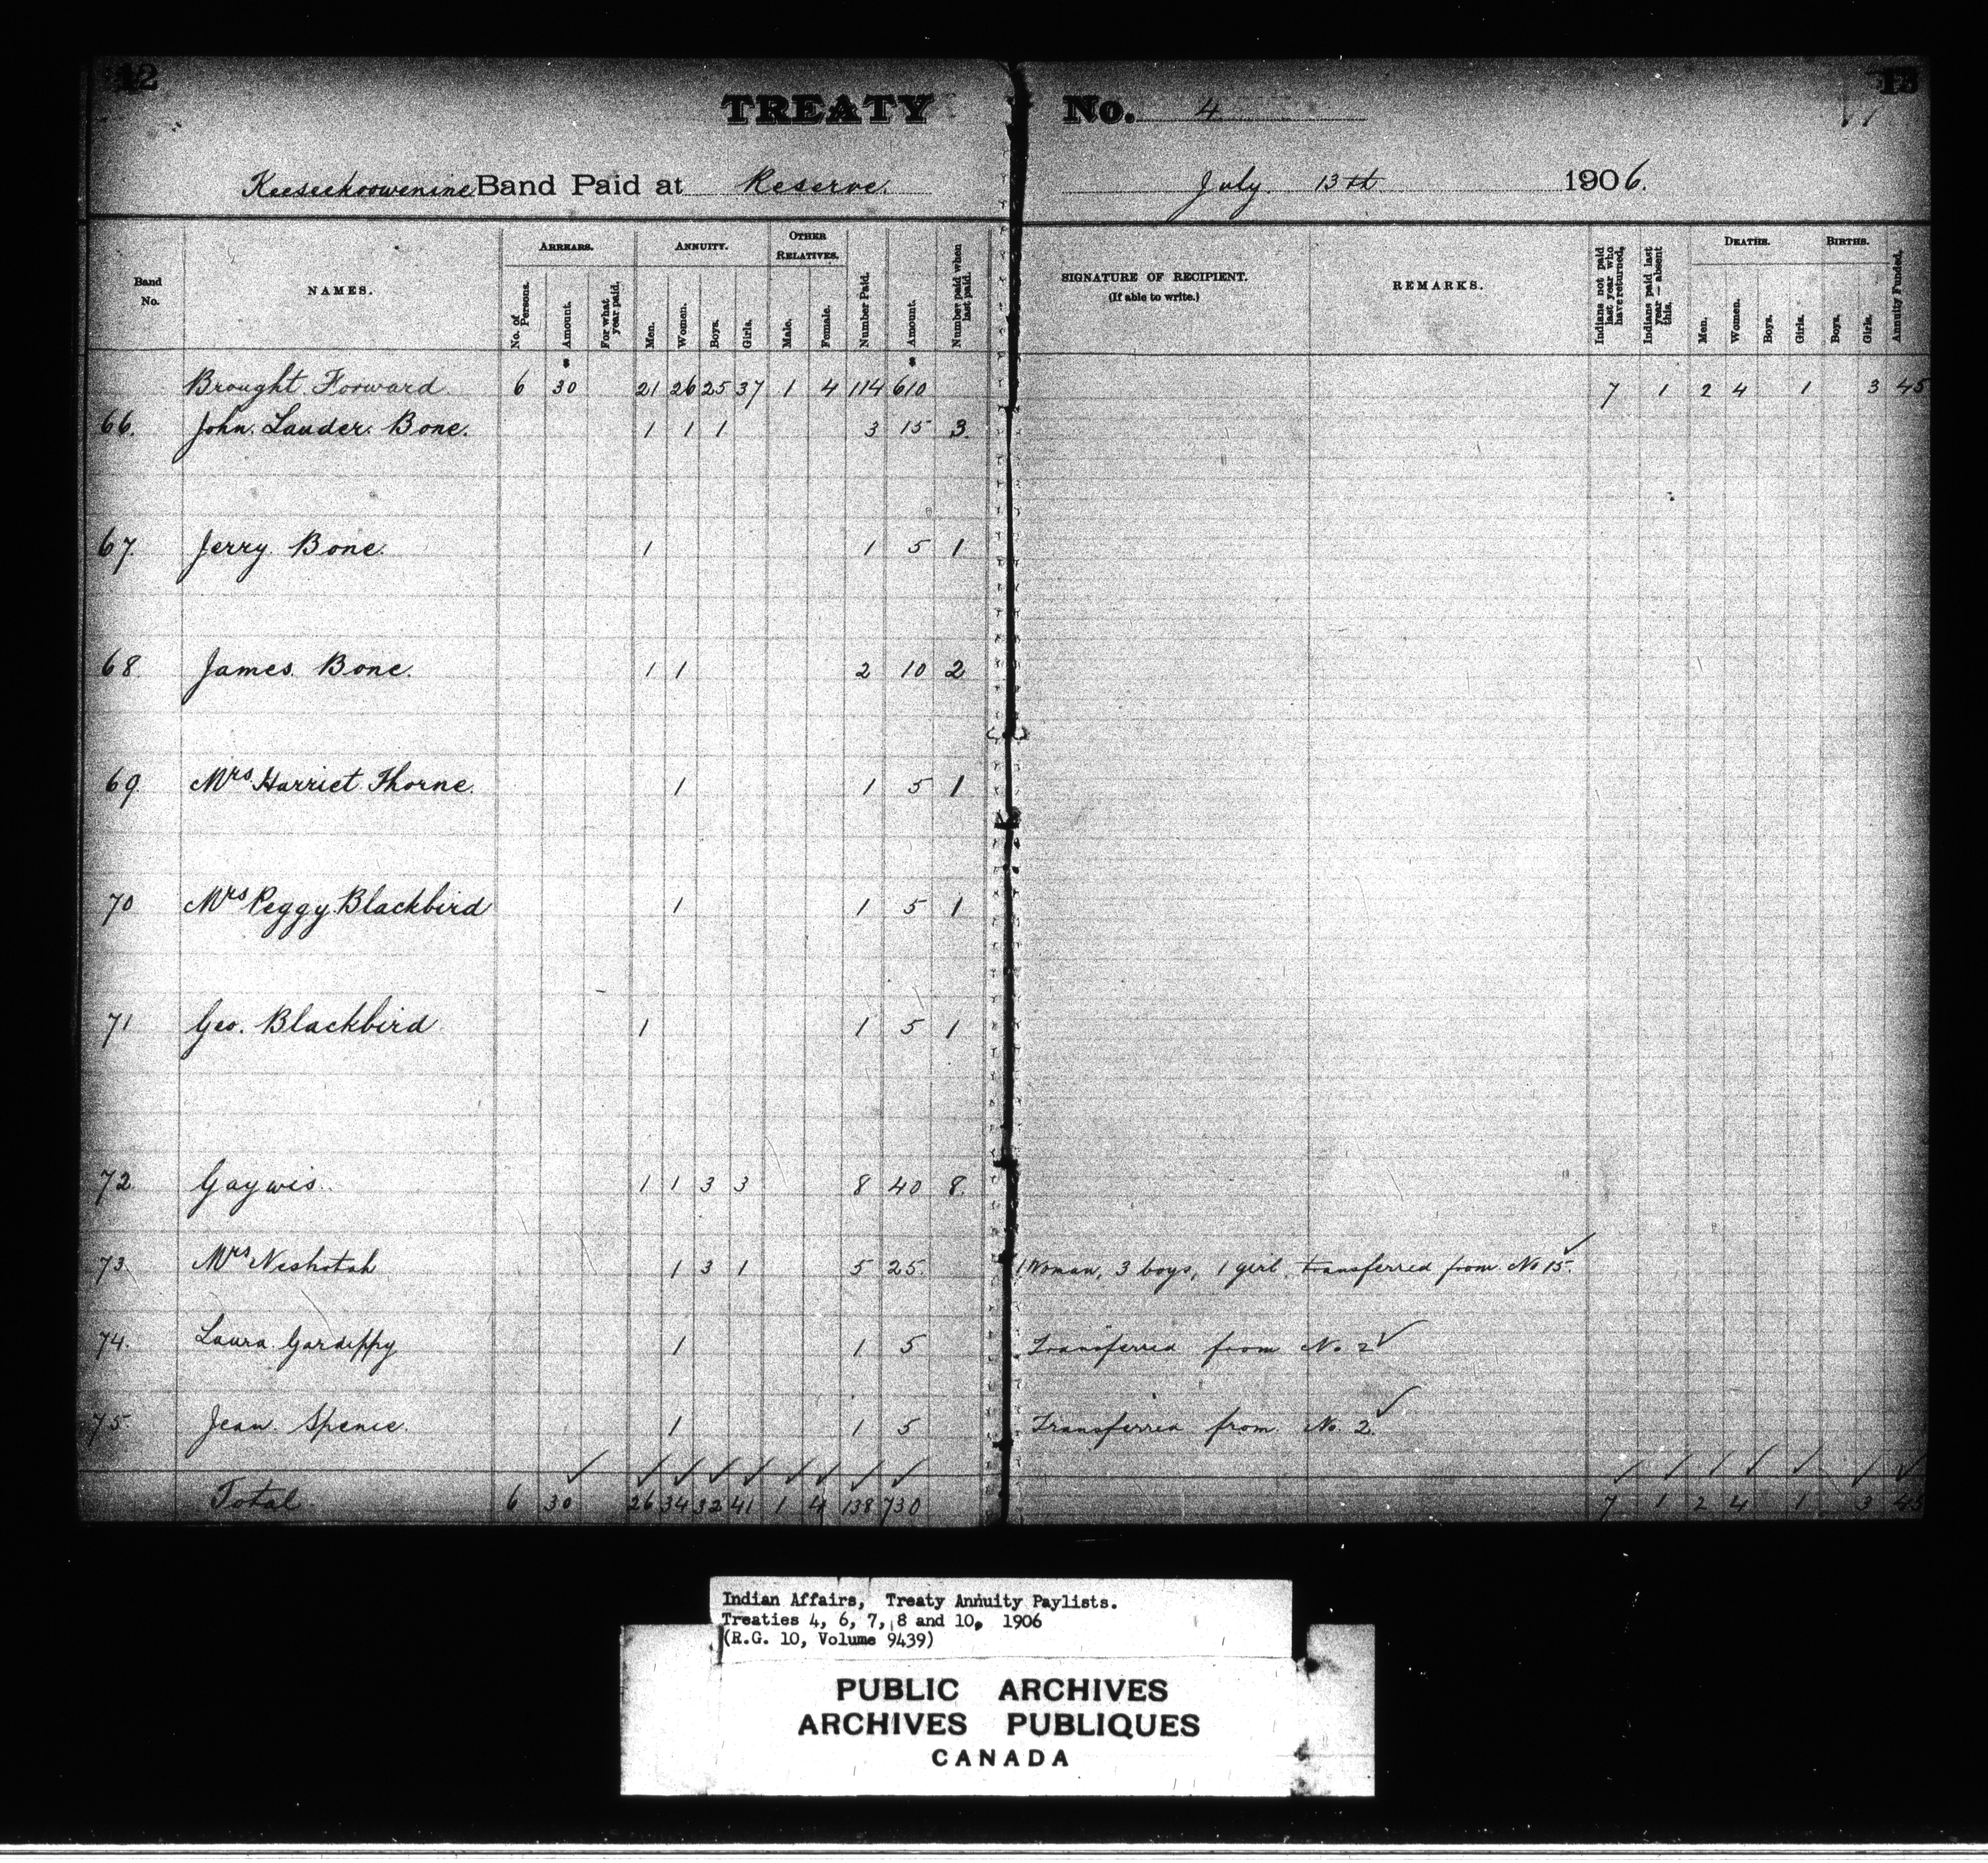 12
TREATY No. 4
13
Keeseekoowenine Band Paid at Reserve. July 13th 1906.
Band No. NAMES. ARREARS. ANNUITY. OTHER RELATIVES. SIGNATURE OF RECIPIENT. (If able to write.) REMARKS. DEATHS. BIRTHS.
No. of Persons. Amount. For what year paid. Men. Women. Boys. Girls. Male. Female. Number Paid. Amount. Number paid when last paid. Indians not paid last year who have returned, Indians paid last year — absent this. Men. Women. Boys. Girls. Boys. Girls. Annuity Funded,
$ $
Brought Forward. 6 30 21 26 25 37 1 4 114 610 7 1 2 4 1 3 45
66. John. Lauder. Bone. 1 1 1 3 15 3.
67. Jerry. Bone. 1 1 5 1
68. James. Bone. 1 1 2 10 2
69. Mrs Harriet Thorne. 1 1 5 1
70 Mrs Peggy Blackbird 1 1 5 1
71 Geo. Blackbird 1 1 5 1
72. Gaywis. 1 1 3 3 8 40 8.
73. Mrs Neshotah 1 3 1 5 25. 1 Woman, 3 boys, 1 girl, transferred from No 15. ✓
74. Laura Gardippy 1 1 5 Transferred from No 2 ✓
75. Jean. Spence. 1 1 5 Transferred from No. 2. ✓
✓ ✓ ✓ ✓ ✓ ✓ ✓ ✓ ✓ ✓ ✓ ✓ ✓ ✓ ✓ ✓
Total. 6 30 26 34 32 41 1 4 138 730 7 1 2 4 1 3 45
Indian Affairs, Treaty Annuity Paylists.
Treaties 4, 6, 7, 8 and 10, 1906
(R.G. 10, Volume 9439)
PUBLIC ARCHIVES
ARCHIVES PUBLIQUES
CANADA